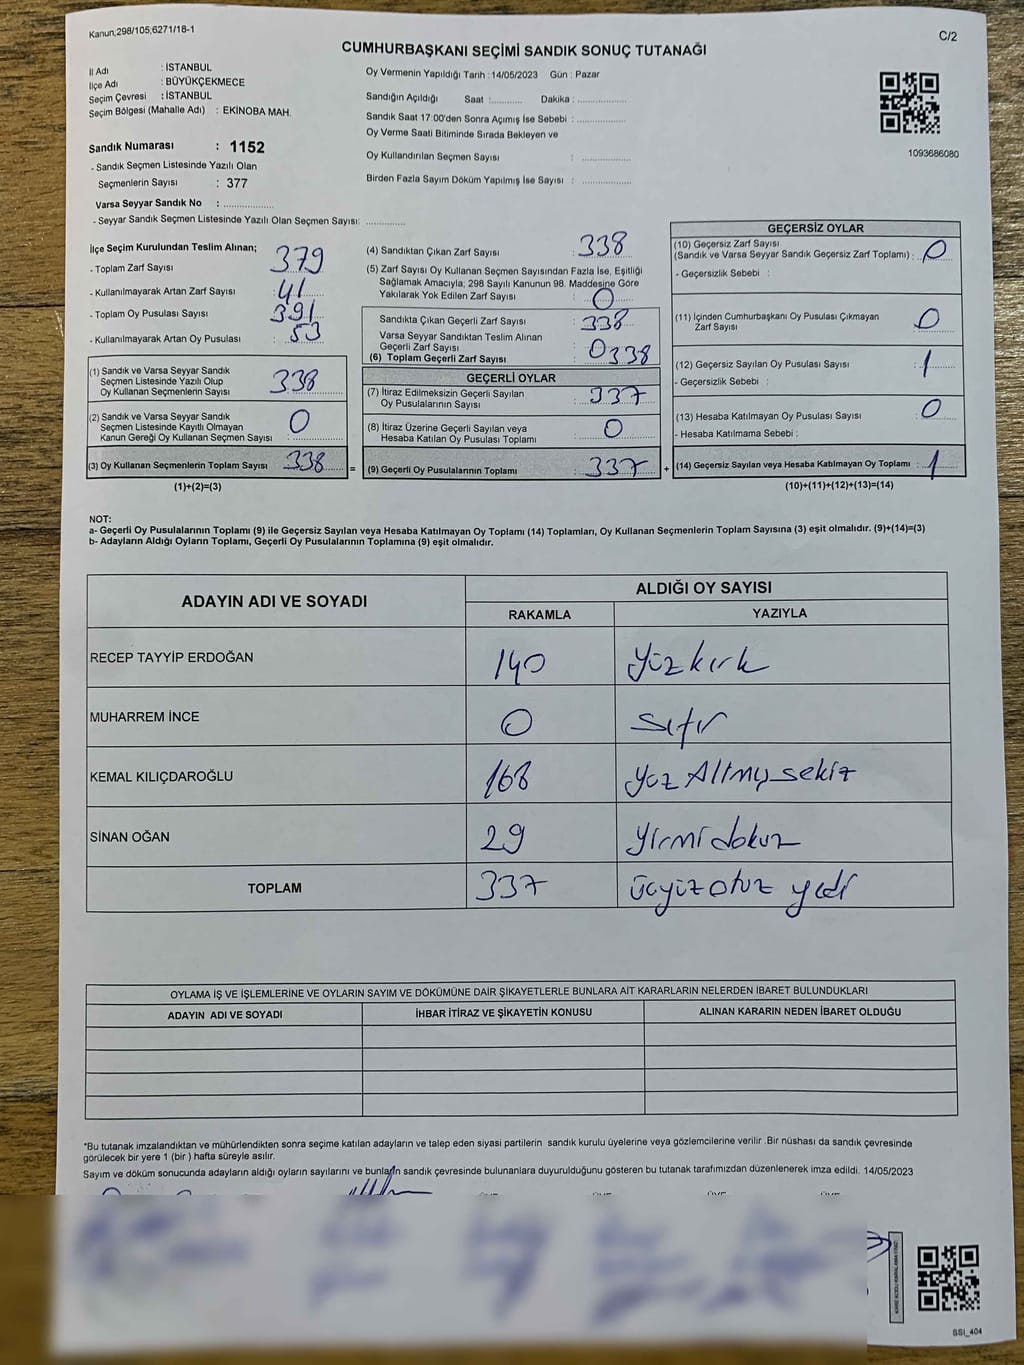 Kanun;298/105;6271/18-1
C/2
CUMHURBAŞKANI SEÇİMİ SANDIK SONUÇ TUTANAĞI
İl Adı : İSTANBUL
İlçe Adı : BÜYÜKÇEKMECE
Seçim Çevresi : İSTANBUL
Seçim Bölgesi (Mahalle Adı) : EKİNOBA MAH.
Sandık Numarası : 1152
- Sandık Seçmen Listesinde Yazılı Olan
Seçmenlerin Sayısı : 377
Varsa Seyyar Sandık No : ..............
- Seyyar Sandık Seçmen Listesinde Yazılı Olan Seçmen Sayısı: ............
Oy Vermenin Yapıldığı Tarih : 14/05/2023 Gün : Pazar
Sandığın Açıldığı Saat :.......... Dakika : ..............
Sandık Saat 17:00'den Sonra Açımış İse Sebebi : ..............
Oy Verme Saati Bitiminde Sırada Bekleyen ve
Oy Kullandırılan Seçmen Sayısı : ..............
Birden Fazla Sayım Döküm Yapılmış İse Sayısı : ..............
1093686080
İlçe Seçim Kurulundan Teslim Alınan;
- Toplam Zarf Sayısı : 379
- Kullanılmayarak Artan Zarf Sayısı : 41
- Toplam Oy Pusulası Sayısı : 391
- Kullanılmayarak Artan Oy Pusulası : 53
(1) Sandık ve Varsa Seyyar Sandık
Seçmen Listesinde Yazılı Olup
Oy Kullanan Seçmenlerin Sayısı : 338
(2) Sandık ve Varsa Seyyar Sandık
Seçmen Listesinde Kayıtlı Olmayan
Kanun Gereği Oy Kullanan Seçmen Sayısı : 0
(3) Oy Kullanan Seçmenlerin Toplam Sayısı : 338
(1)+(2)=(3)
=
(4) Sandıktan Çıkan Zarf Sayısı : 338
(5) Zarf Sayısı Oy Kullanan Seçmen Sayısından Fazla İse, Eşitliği
Sağlamak Amacıyla; 298 Sayılı Kanunun 98. Maddesine Göre
Yakılarak Yok Edilen Zarf Sayısı : 0
Sandıkta Çıkan Geçerli Zarf Sayısı : 338
Varsa Seyyar Sandıktan Teslim Alınan
Geçerli Zarf Sayısı : 0
(6) Toplam Geçerli Zarf Sayısı : 338
GEÇERLİ OYLAR
(7) İtiraz Edilmeksizin Geçerli Sayılan
Oy Pusulalarının Sayısı : 337
(8) İtiraz Üzerine Geçerli Sayılan veya
Hesaba Katılan Oy Pusulası Toplamı : 0
(9) Geçerli Oy Pusulalarının Toplamı : 337
+
GEÇERSİZ OYLAR
(10) Geçersiz Zarf Sayısı
(Sandık ve Varsa Seyyar Sandık Geçersiz Zarf Toplamı) : 0
- Geçersizlik Sebebi :
(11) İçinden Cumhurbaşkanı Oy Pusulası Çıkmayan
Zarf Sayısı : 0
(12) Geçersiz Sayılan Oy Pusulası Sayısı : 1
- Geçersizlik Sebebi :
(13) Hesaba Katılmayan Oy Pusulası Sayısı : 0
- Hesaba Katılmama Sebebi :
(14) Geçersiz Sayılan veya Hesaba Katılmayan Oy Toplamı : 1
(10)+(11)+(12)+(13)=(14)
NOT:
a- Geçerli Oy Pusulalarının Toplamı (9) ile Geçersiz Sayılan veya Hesaba Katılmayan Oy Toplamı (14) Toplamları, Oy Kullanan Seçmenlerin Toplam Sayısına (3) eşit olmalıdır. (9)+(14)=(3)
b- Adayların Aldığı Oyların Toplamı, Geçerli Oy Pusulalarının Toplamına (9) eşit olmalıdır.
ADAYIN ADI VE SOYADI ALDIĞI OY SAYISI
RAKAMLA YAZIYLA
RECEP TAYYİP ERDOĞAN 140 Yüzkırk
MUHARREM İNCE 0 Sıfır
KEMAL KILIÇDAROĞLU 168 yüz Altmış sekiz
SİNAN OĞAN 29 yirmidokuz
TOPLAM 337 üçyüz otuz yedi
OYLAMA İŞ VE İŞLEMLERİNE VE OYLARIN SAYIM VE DÖKÜMÜNE DAİR ŞİKAYETLERLE BUNLARA AİT KARARLARIN NELERDEN İBARET BULUNDUKLARI
ADAYIN ADI VE SOYADI İHBAR İTİRAZ VE ŞİKAYETİN KONUSU ALINAN KARARIN NEDEN İBARET OLDUĞU
*Bu tutanak imzalandıktan ve mühürlendikten sonra seçime katılan adayların ve talep eden siyasi partilerin sandık kurulu üyelerine veya gözlemcilerine verilir .Bir nüshası da sandık çevresinde
görülecek bir yere 1 (bir ) hafta süreyle asılır.
Sayım ve döküm sonucunda adayların aldığı oyların sayılarını ve bunların sandık çevresinde bulunanlara duyurulduğunu gösteren bu tutanak tarafımızdan düzenlenerek imza edildi. 14/05/2023
SSI_404